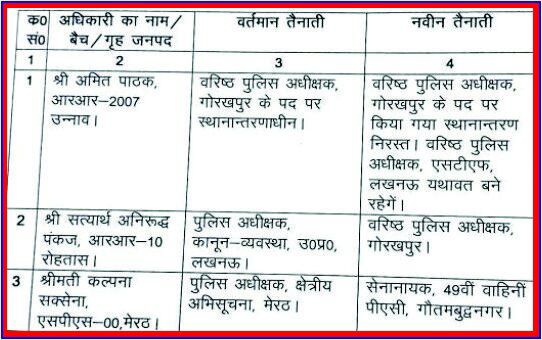 क0 सं0 | अधिकारी का नाम/ बैच/गृह जनपद | वर्तमान तैनाती | नवीन तैनाती
1 | 2 | 3 | 4
1 | श्री अमित पाठक, | वरिष्ठ पुलिस अधीक्षक, | वरिष्ठ पुलिस अधीक्षक,
आरआर–2007 | गोरखपुर के पद पर | गोरखपुर के पद पर
उन्नाव। | स्थानान्तरणाधीन। | किया गया स्थानान्तरण
निरस्त। वरिष्ठ पुलिस
अधीक्षक, एसटीएफ,
लखनऊ यथावत बने
रहेगें।
2 | श्री सत्यार्थ अनिरूद्ध | पुलिस अधीक्षक, | वरिष्ठ पुलिस अधीक्षक,
पंकज, आरआर–10 | कानून–व्यवस्था, उ0प्र0, | गोरखपुर।
रोहतास। | लखनऊ।
3 | श्रीमती कल्पना | पुलिस अधीक्षक, क्षेत्रीय | सेनानायक, 49वीं वाहिनीं
सक्सेना, | अभिसूचना, मेरठ। | पीएसी, गौतमबुद्वनगर।
एसपीएस–00,मेरठ।